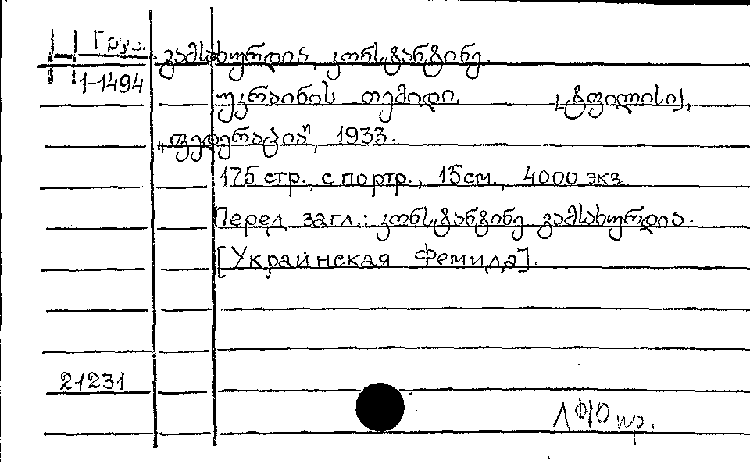 Груз.
1-1494
გამსახურდია, კონსტანტინე.
უკრაინის თემიდი. [ტფილისი],
„ფედერაცია", 1933.
175 стр., с портр., 15 см., 4000 экз.
Перед загл.: კონსტანტინე გამსახურდია.
[Украинская Фемида].
21231